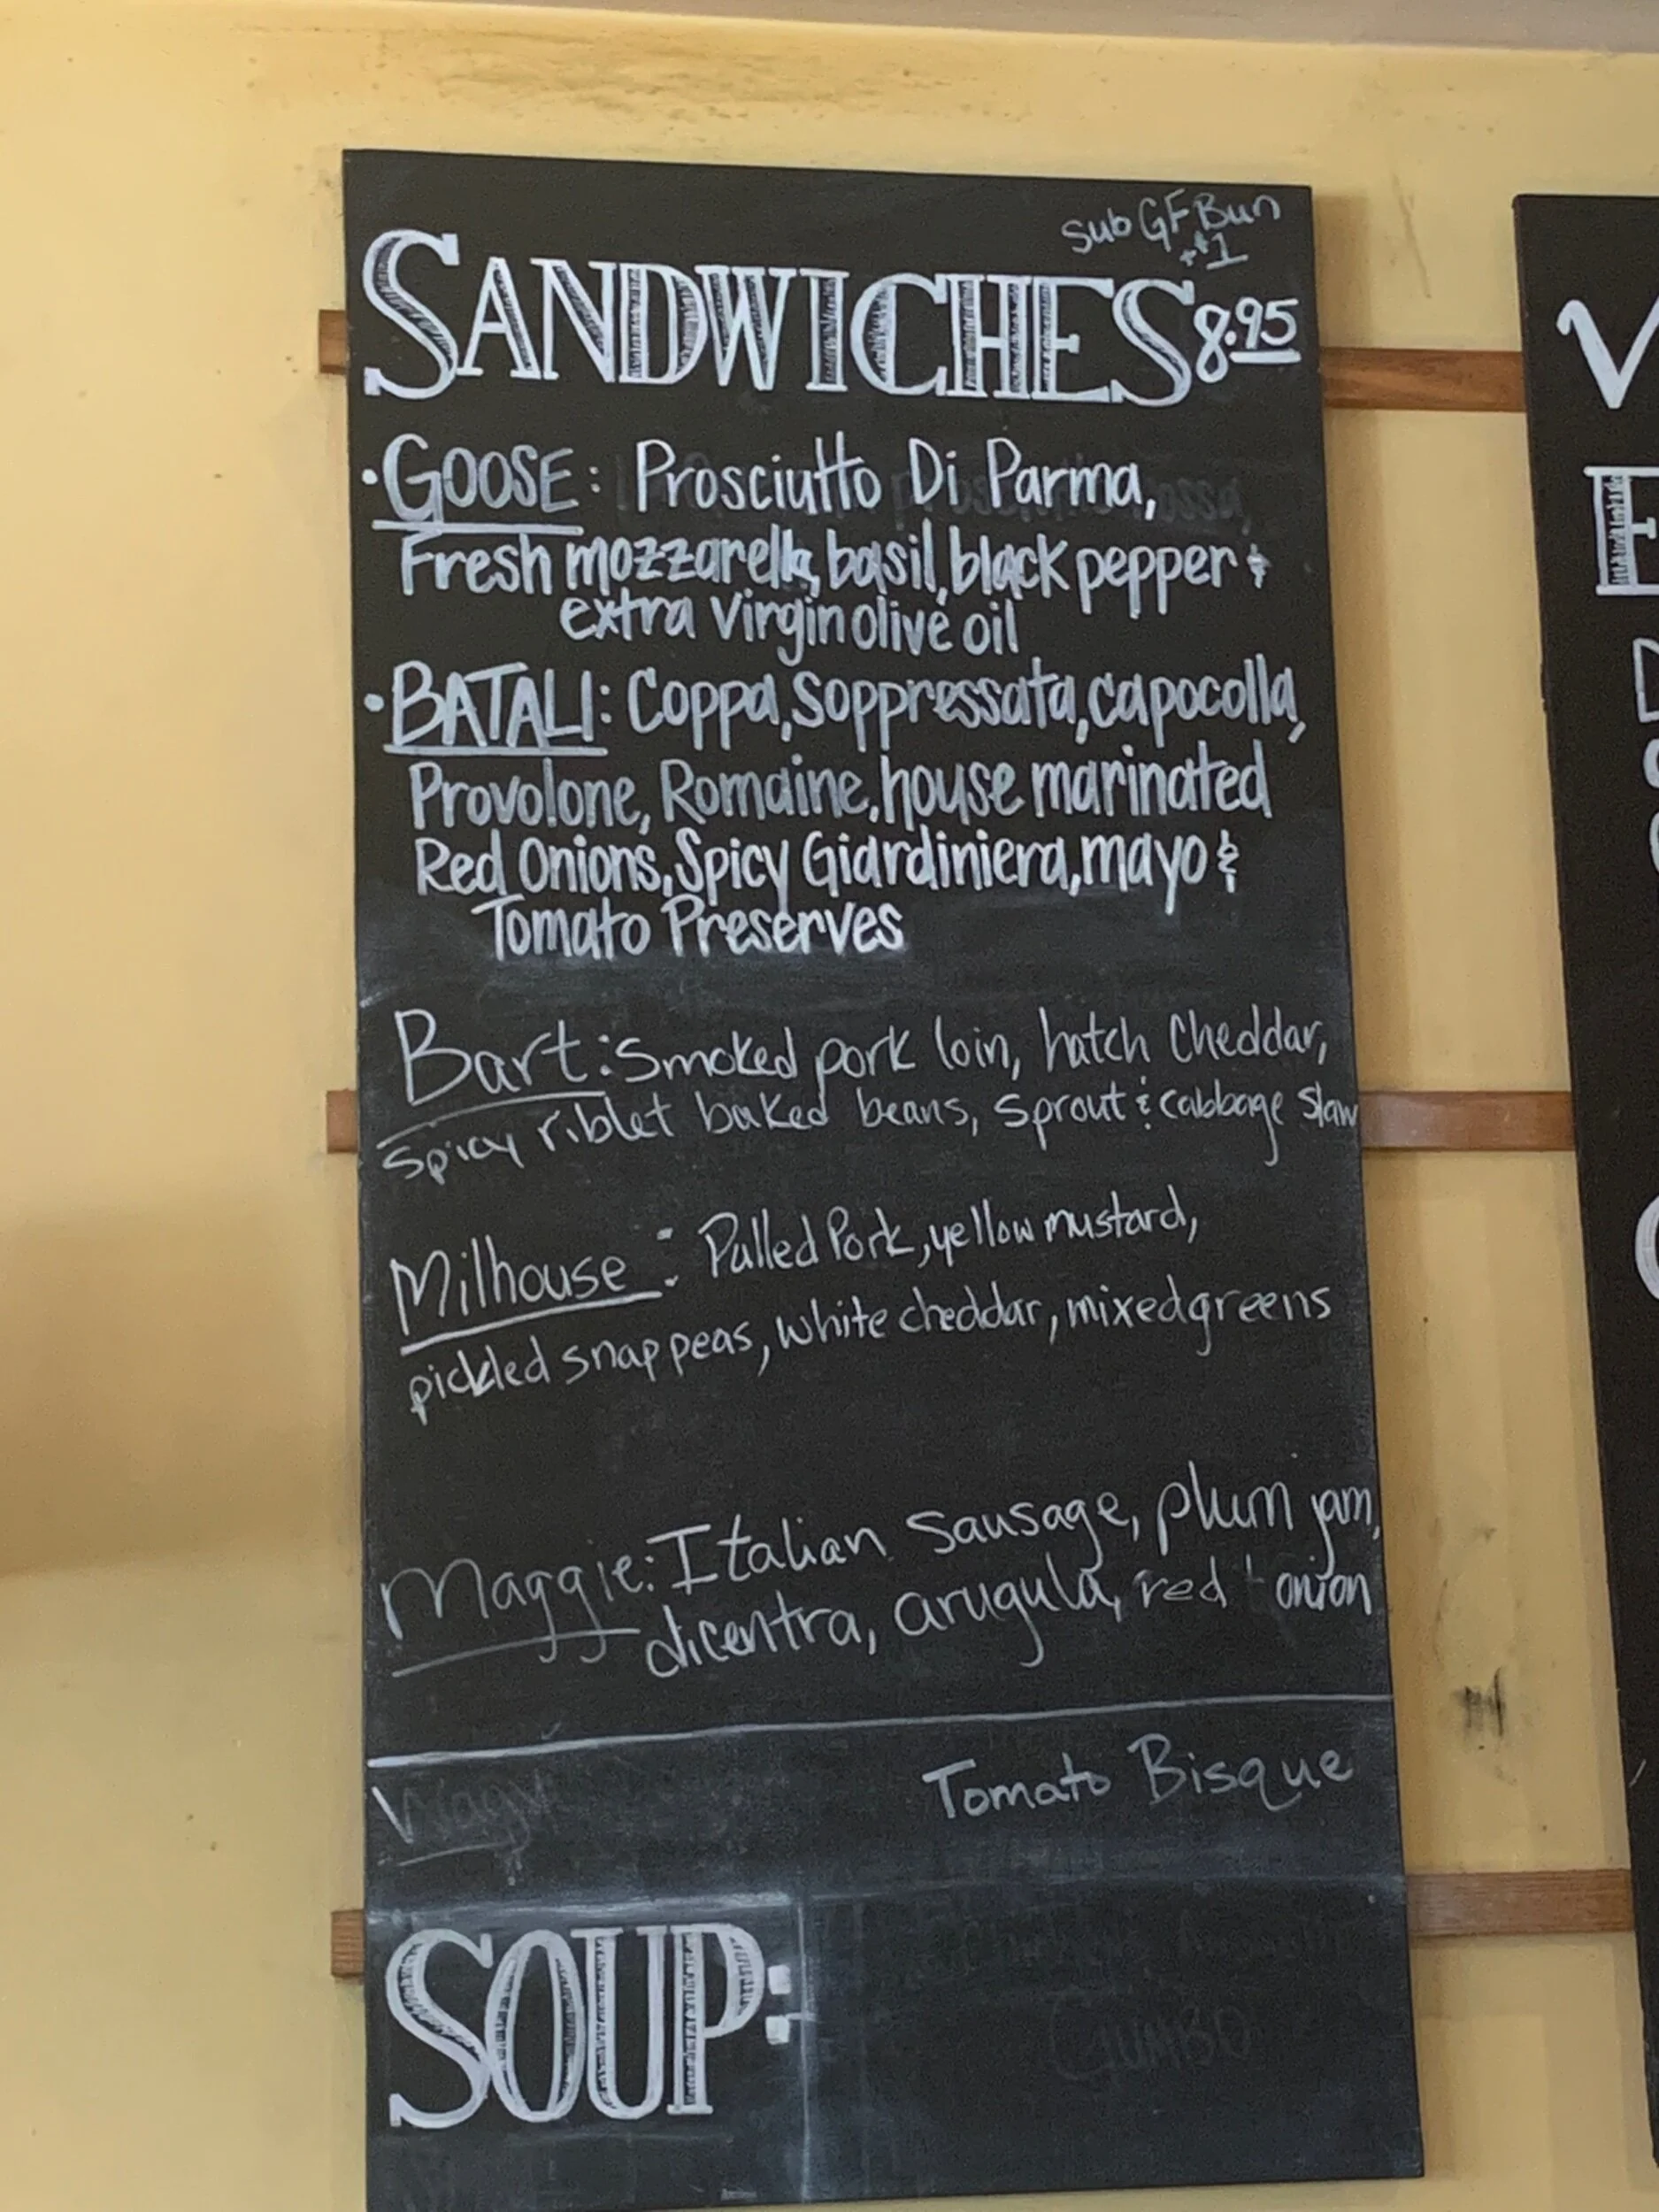 sub GF Bun
+$1
SANDWICHES 8.95
• GOOSE: Prosciutto Di Parma,
Fresh mozzarella, basil, black pepper &
extra virgin olive oil
• BATALI: Coppa, Soppressata, capocolla,
Provolone, Romaine, house marinated
Red Onions, Spicy Giardiniera, mayo &
Tomato Preserves
Bart: Smoked pork loin, hatch cheddar,
spicy riblet baked beans, sprout & cabbage slaw
Milhouse: Pulled Pork, yellow mustard,
pickled snap peas, white cheddar, mixed greens
Maggie: Italian sausage, plum jam,
dicentra, arugula, red onion
Tomato Bisque
SOUP:
GUMBO